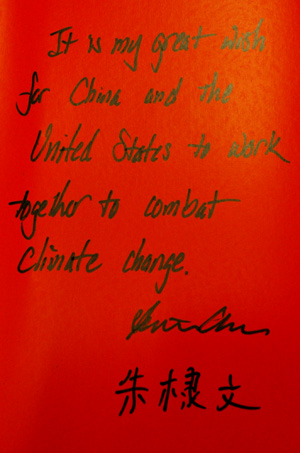 It is my great wish
for China and the
United States to work
together to combat
Climate change.
朱棣文